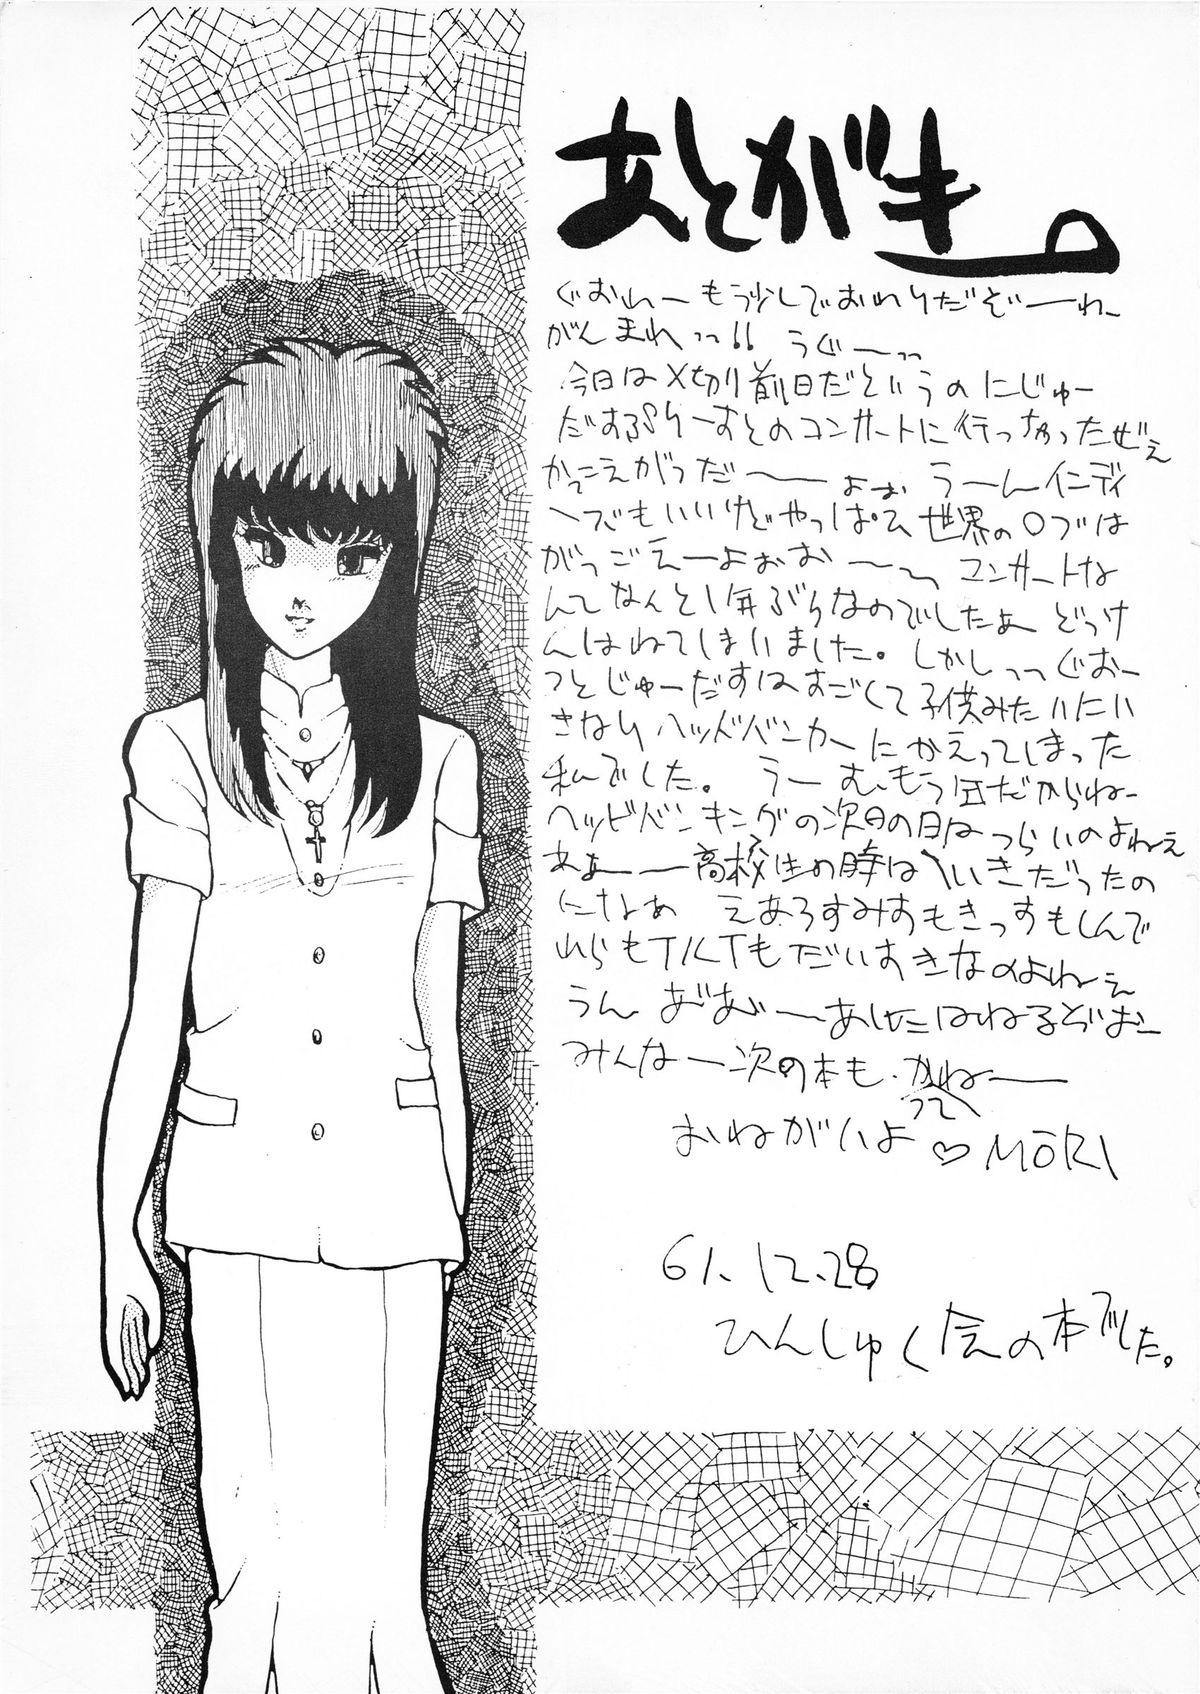 あとがき。
ぐおわーもう少しでおわりだぞーーわー
がんまれっっ!! うぐーーっっ
今日は〆切り前日だというのにじゅー
だすぷりーすとのコンサートに行っちゃったぜぇ
かっこえがっだ〜〜ーょぉぉ うーんインディ
ーズでもいいけどやっぱっ 世界のロブは
がっごえーーよぉぉお〜〜っ コンサートな
んてなんと1年ぶりなのでしたぁー どっけ
んはねてしまいました。しかしっっぐおー
っとじゅーだすはすごくて子供みたいにい
きなりヘッドバンカーにかえってしまった
私でした。 うーむ、もう年だからねー
ヘッドバンキングの次の日の日はつらいのよねぇ
あぁーー高校生の時はへいきだったの
になぁ えあろすみすもきっすもしんで
れらもT/LTもだいすきなのよねぇ
うん あ゛あ゛ーーあしたはねるぞぉおー
みんなー次の本も かねーー
ってへ
おねがいよ♡MŌRI
61.12.28
ひんしゅく会の本でした。